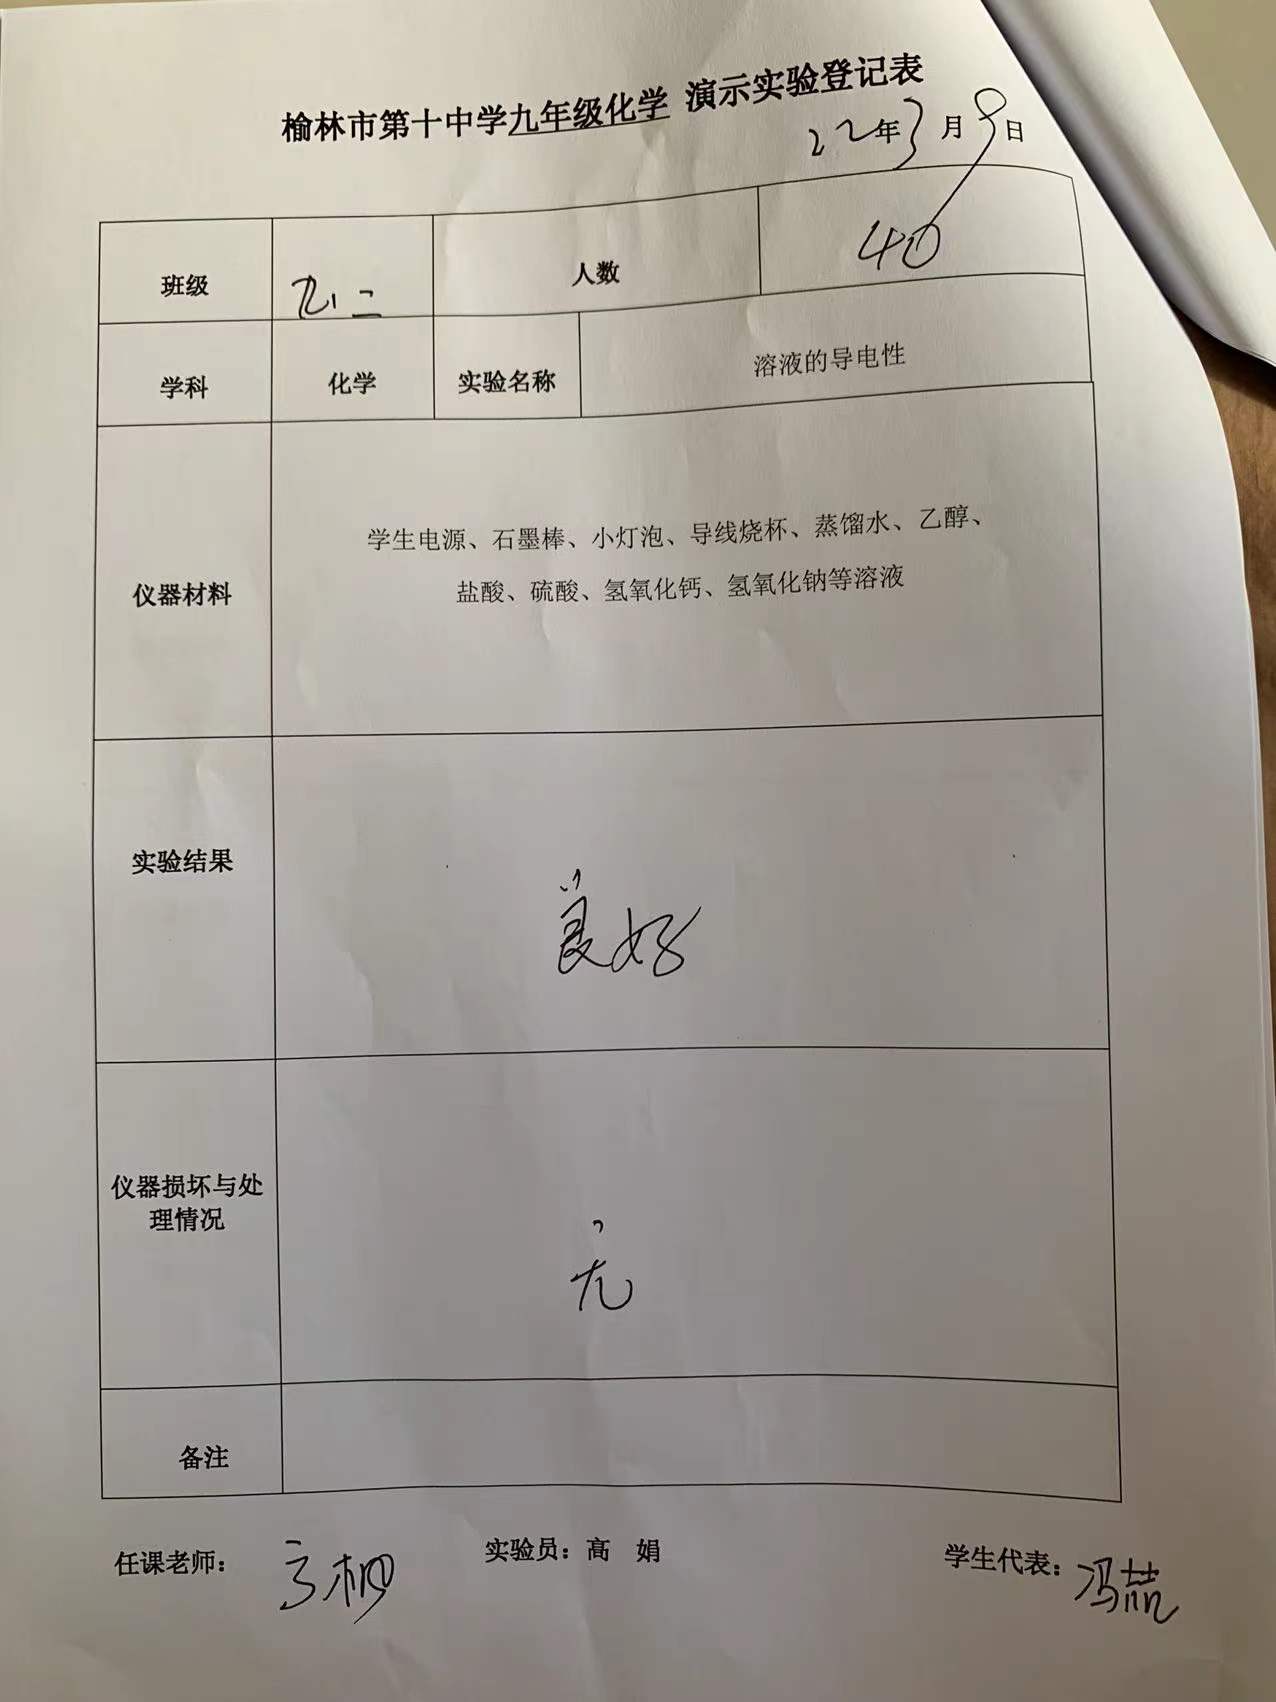 榆林市第十中学九年级化学 演示实验登记表
22年3月9日
班级 九二 人数 40
学科 化学 实验名称 溶液的导电性
仪器材料
学生电源、石墨棒、小灯泡、导线烧杯、蒸馏水、乙醇、
盐酸、硫酸、氢氧化钙、氢氧化钠等溶液
实验结果
良好
仪器损坏与处
理情况
无
备注
任课老师： 实验员：高 娟 学生代表：冯